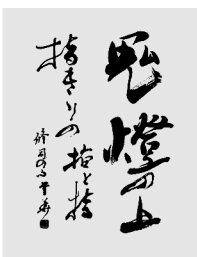 鬼燈の上
指きりの
指と指